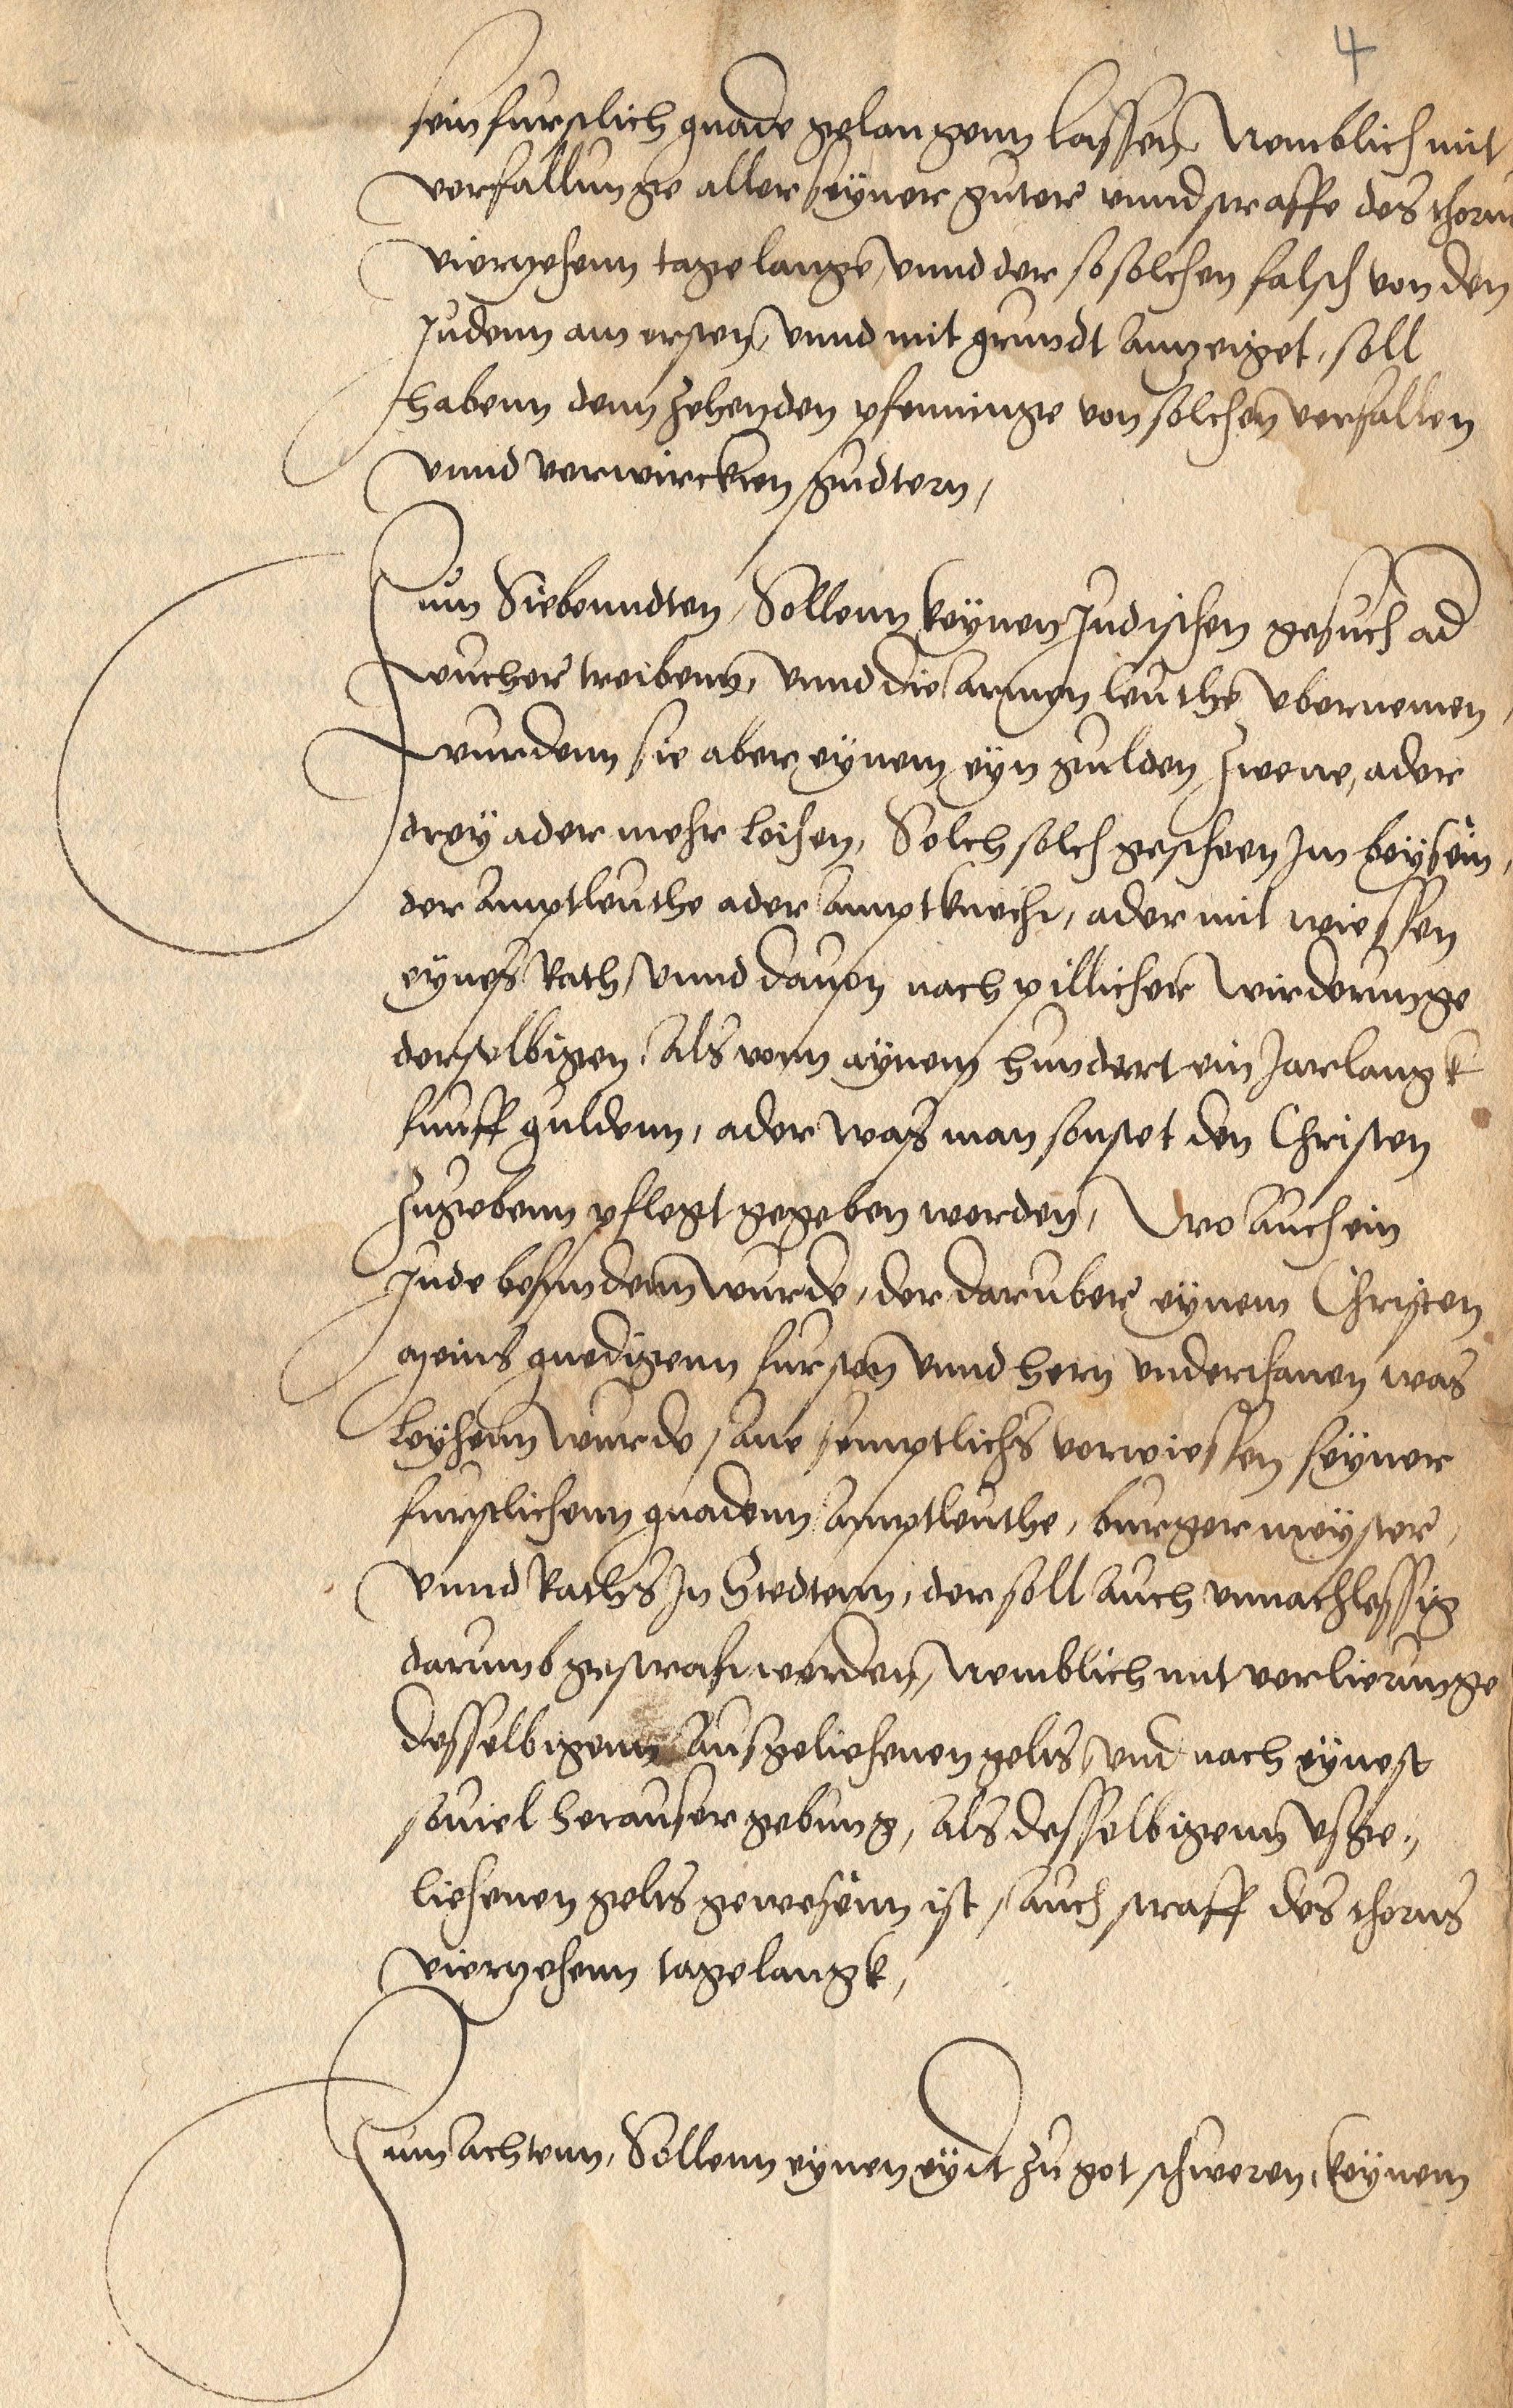 4
sein furstlich gnade gelangenn lassen, Nemblich mit
verfallunge aller seyner guter unnd straffe des thorns
vierzehenn tage lange, unnd der so solchen falsch von den
Judenn am ersten, unnd mit grundt anzeiget, soll
habenn denn zehenden pfenninge von solchen verfallen
unnd verwirckten gudtern,
Zum Siebenndten, Sollenn keynen Judischen gesuch ad
wucher treibenn, unnd die armen leuthe ubernemen,
wurdenn sie aber eynem eyn gulden zwene, ader
drey ader mehr leihen, Solch solch gescheen Im beysein,
der amptleuthe ader amptknecht, ader mit wiessen
eynes Rath, unnd davon nach pillicher wirderunge
derselbigen, als vonn aynem hundert ein Jarlangk
funff guldenn, ader was man sonstet den Christen
zugebenn pflegt gegeben werden, Wo auch ein
Jude befundenn wurde, der daruber eynem Christen
meins gnedigenn fursten unnd hern underthanen was
leyhenn wurde, ane semptlichs verwiessen seyner
furstlichenn gnadenn amptleuthe, burgermeyster,
unnd Raths In Stedtenn, der soll auch unnachlessig
darumb gestraft werden, Nemblich mit verlierunge
desselbigenn ausgeliehenen gelts, und nach eynest
soviel herauser gebung, als desselbigenn usge-
liehenen gelts gewesenn ist, auch straff des thorns
vierzehenn tage langk,
Zum achtenn, Sollenn eynen eydt zu got schweren, keynem